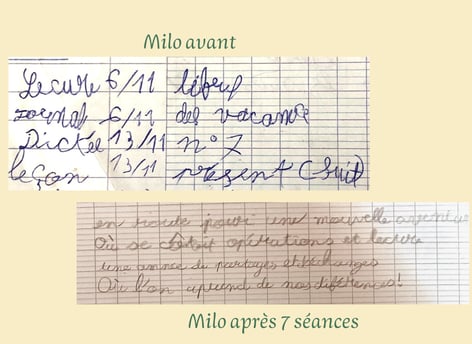 Milo avant
Lecure 6/11 libre
Journal 6/11 des vacance
Dictée 13/11 n° 7
leçon 13/11 présent (suit)
en route pour une nouvelle aventure
Où se opérations et lecture
une année de partages et échanges
Où l'on aprend de nos différences!
Milo après 7 séances